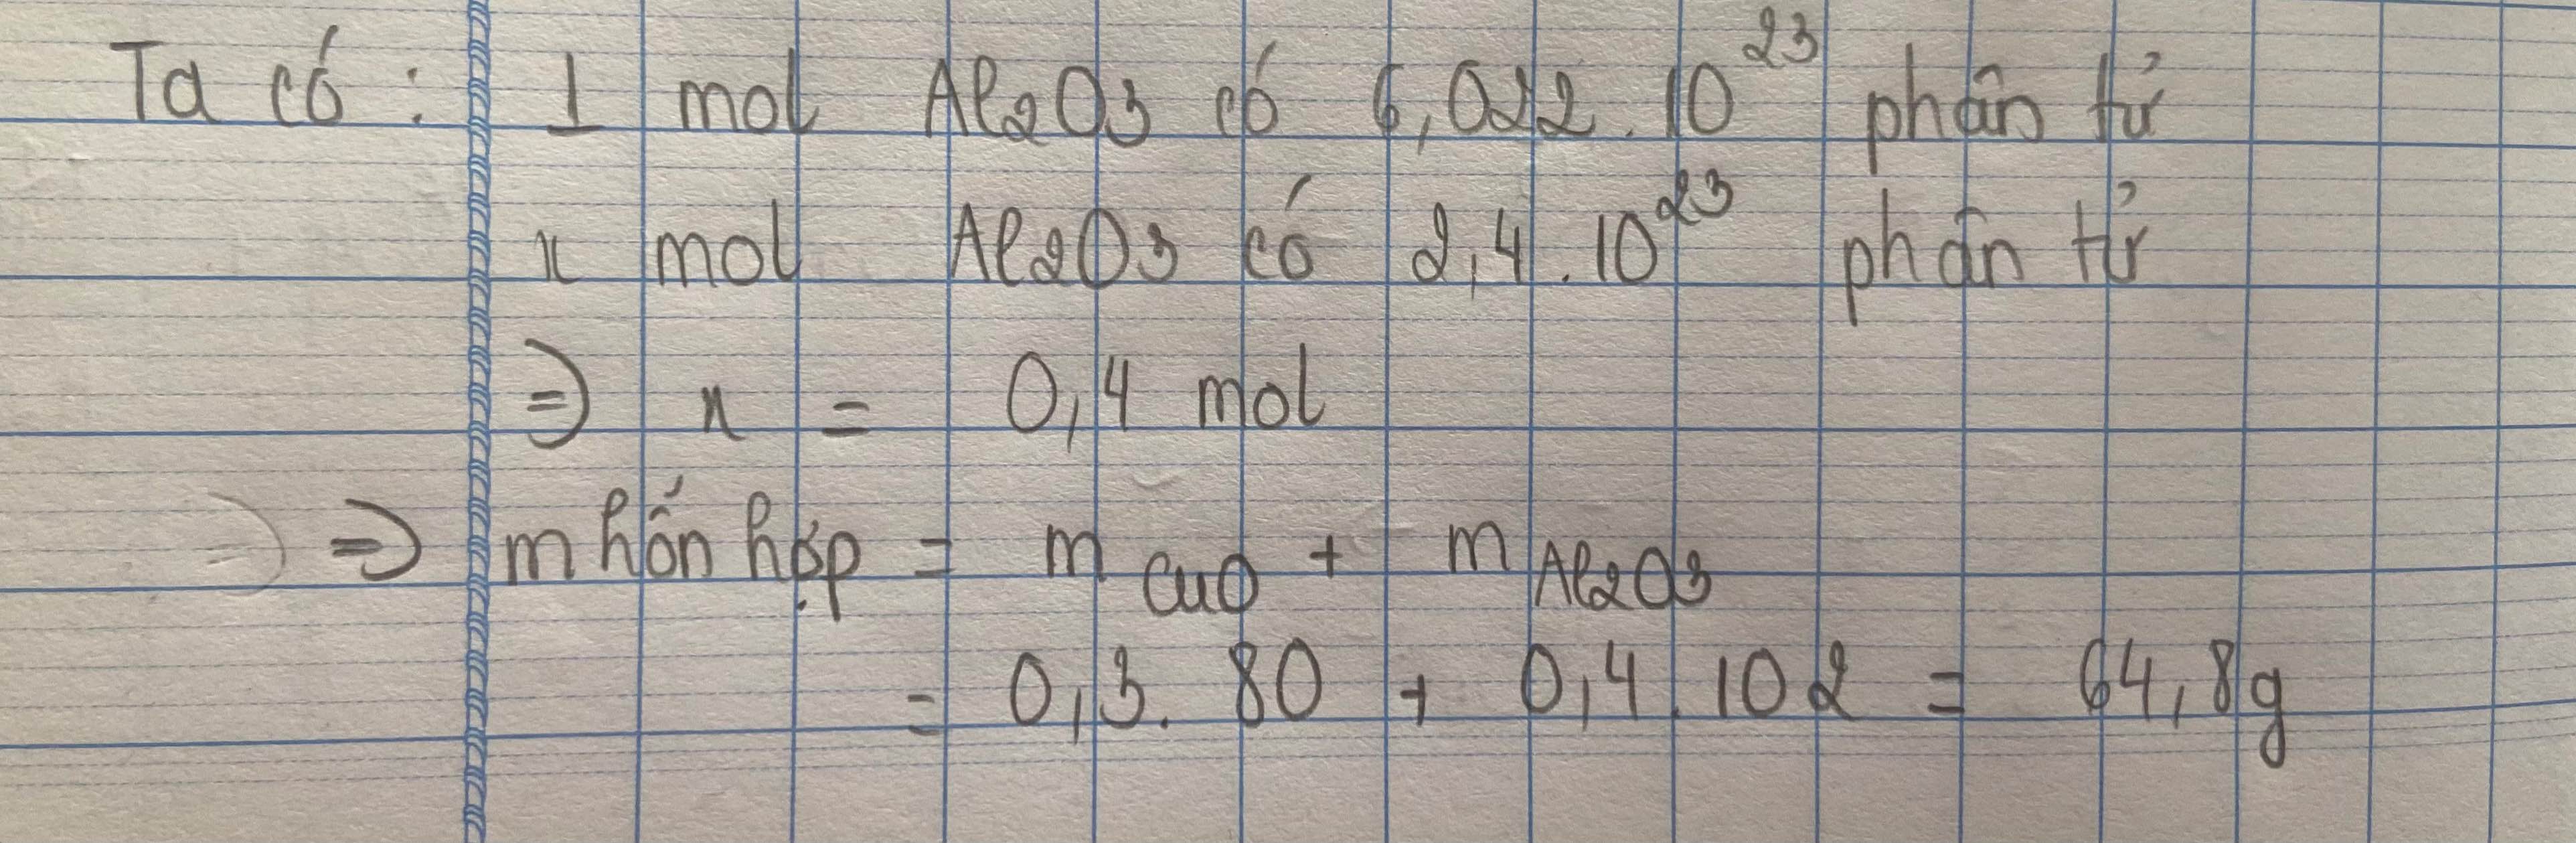 Ta có : 1 mol Al2O3 có 6,022.10^23 phân tử
x mol Al2O3 có 2,4.10^23 phân tử
=> x = 0,4 mol
=> => m hỗn hợp = m CuO + m Al2O3
= 0,3. 80 + 0,4.102 = 64,8g